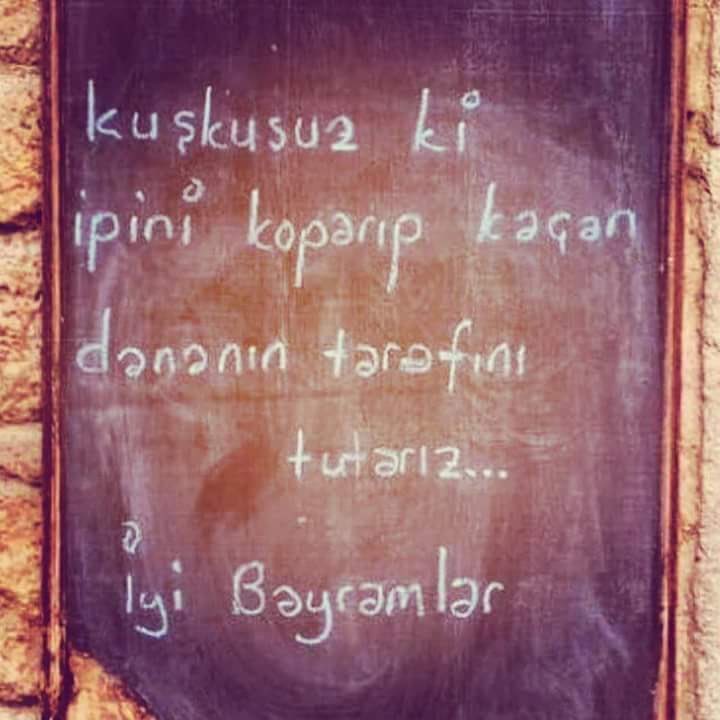 kuşkusuz ki
ipini koparıp kaçan
dananın tarafını
tutarız...
iyi Bayramlar